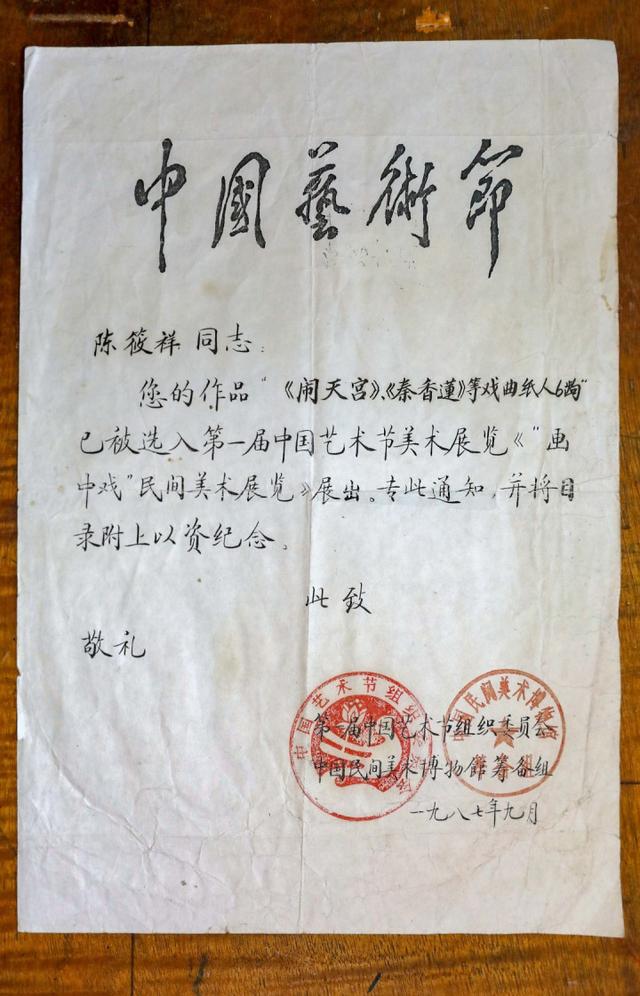 中國藝術節
陈筱祥同志：
您的作品“《闹天宫》、《秦香莲》等戏曲纸人6齣”
已被选入第一届中国艺术节美术展览《“画
中戏”民间美术展览》展出。专此通知，并将目
录附上以资纪念。
此致
敬礼
第一届中国艺术节组织委员会
中国民间美术博物馆筹备组
一九八七年九月